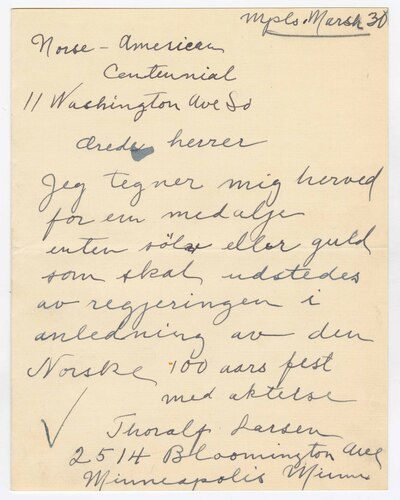 Mpls. Marsh 30
Norse-American
Centennial
11 Washington Ave So
Ærede herrer
Jeg tegner mig herved
for em medalje
enten sölv eller guld
som skal udstedes
av regjeringen i
anledning av den
Norske 100 aars fest
med aktelse
Thoralf Larsen
2514 Bloomington Ave
Minneapolis Minn